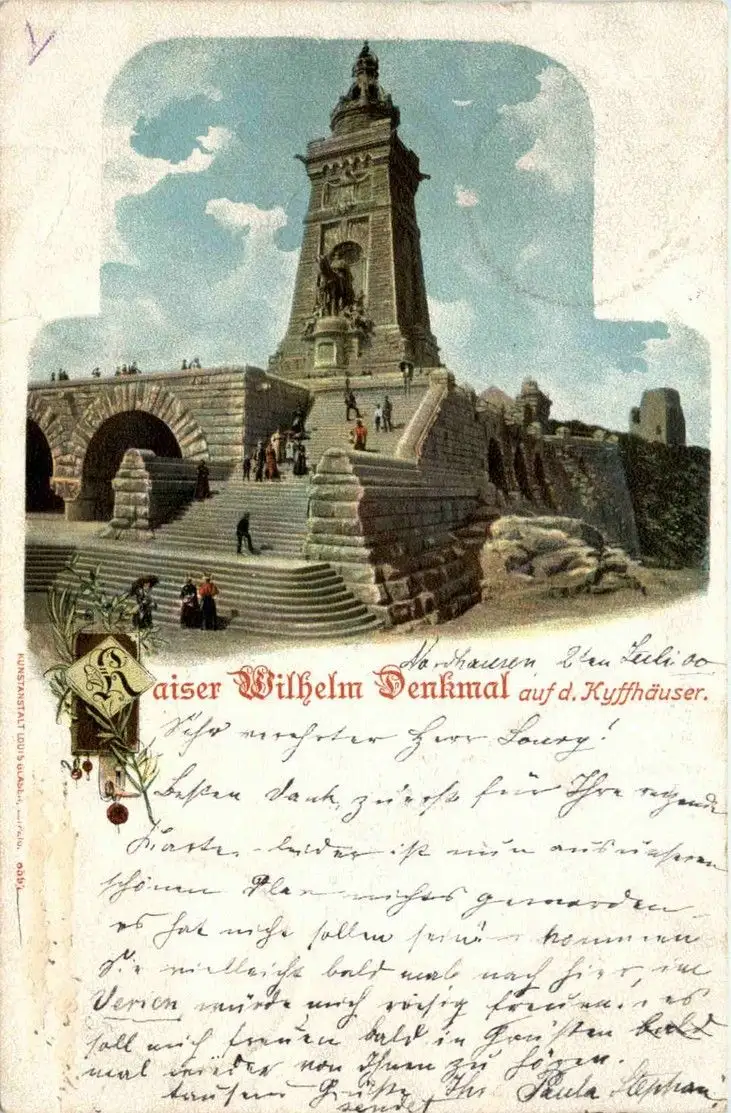 Nordhausen, 2ten Juli 00
Kaiser Wilhelm Denkmal auf d. Kyffhäuser.
Sehr verehrter Herr
Besten Dank zuerst für Ihre
Karte, leider ist nun aus unserem
schönen Plan nichts geworden
es hat nicht sollen sein kommen
Sie vielleicht bald mal nach hier, im
würde mich riesig freuen. es
soll mich freuen bald in
mal wieder von Ihnen zu hören.
tausend Grüße Ihr Paula Stephan
sendet
KUNSTANSTALT LOUIS GLASER, LEIPZIG.